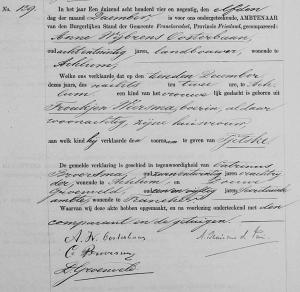 No. 129.
In het jaar Een duizend acht honderd vier en negentig, den elfden
der maand December, is voor ons ondergeteekende, AMBTENAAR
van den Burgerlijken Stand der Gemeente Franekeradeel, Provincie Friesland, gecompareerd:
Anne Wijbrens Oosterbaan,
oud achtentwintig jaren, landbouwer, wonende te
Achlum
Welke ons verklaarde dat op den tienden December
dezes jaars, des nachts ten twee ure, te Ach-
lum, een kind van het vrouwelijke geslacht is geboren uit
Froukjen Wiersma, boerin, aldaar
woonachtig, zijne huisvrouw
aan welk kind hij verklaarde den voornaam te geven van Tjitske
De gemelde verklaring is geschied in tegenwoordigheid van
Broersma, oud jaren,
wonende te Achlum en
Groeneveld oud jaren,
wonende te Franeker
Waarvan wij deze akte hebben opgemaakt, en na voorlezing onderteekend met den
comparant en de getuigen.
A. W. Oosterbaan
C. Broersma
Groeneveld